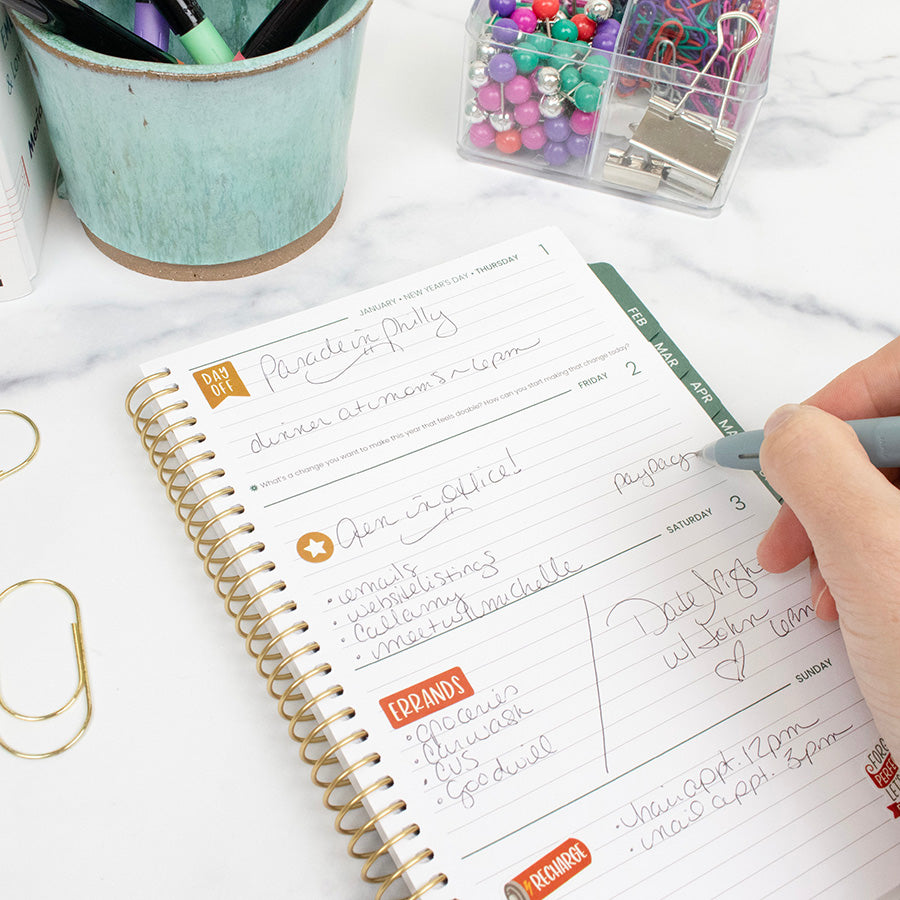 JANUARY • NEW YEAR'S DAY • THURSDAY 1
DAY OFF
Parade in Philly
dinner at moms ~ 6pm
What's a change you want to make this year that feels doable? How can you start making that change today?
FRIDAY 2
Open in Office!
payday
• emails
• website listings
• call amy
• meet w/ michelle
SATURDAY 3
ERRANDS
• groceries
• car wash
• CVS
• goodwill
Date Nigh
w/ John 6pm
SUNDAY
• hair appt. 12pm
• nail appt. 3pm
RECHARGE
FEB
MAR
APR
MA